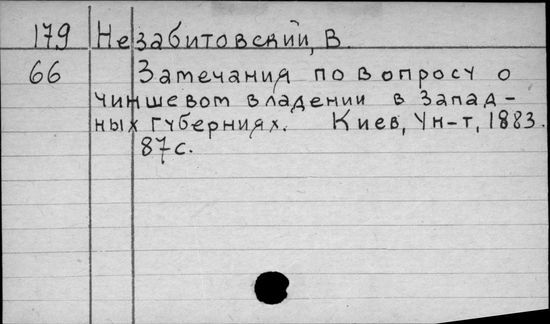 179 Незабитовский, В.
66 Замечания по вопросу о
чиншевом владении в Запад-
ных губерниях. Киев, Ун-т, 1883.
87 с.